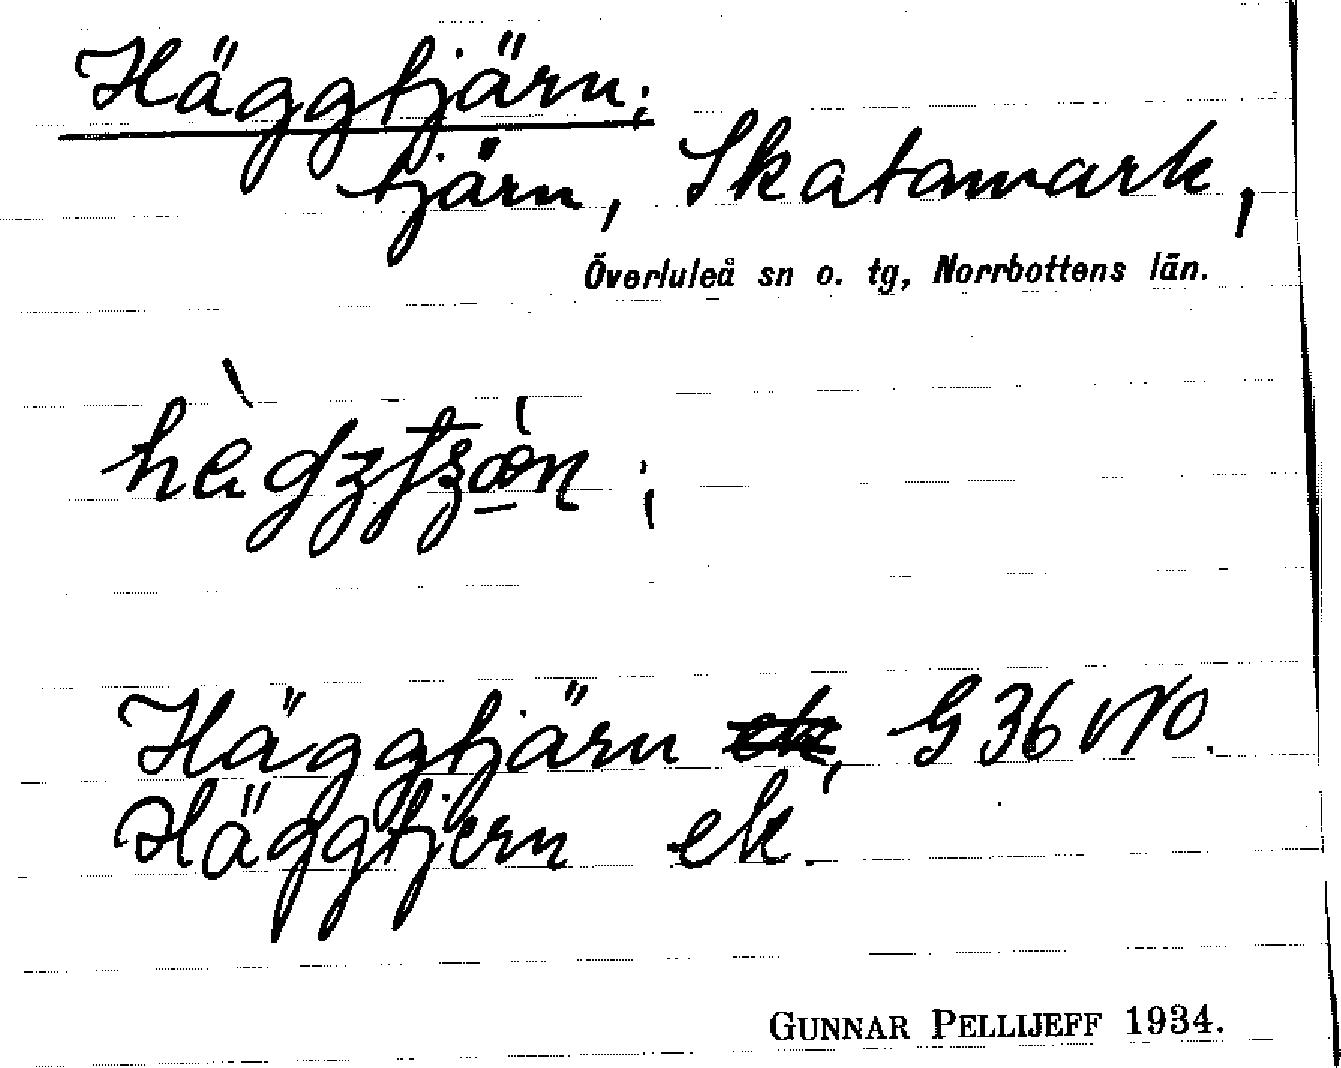 Häggtjärn;
tjärn, Skatamark,
Överluleå sn o. tg, Norrbottens län.
Häggtjärn, G 36 NO.
Häggtjern ek.
GUNNAR PELLIJEFF 1934.